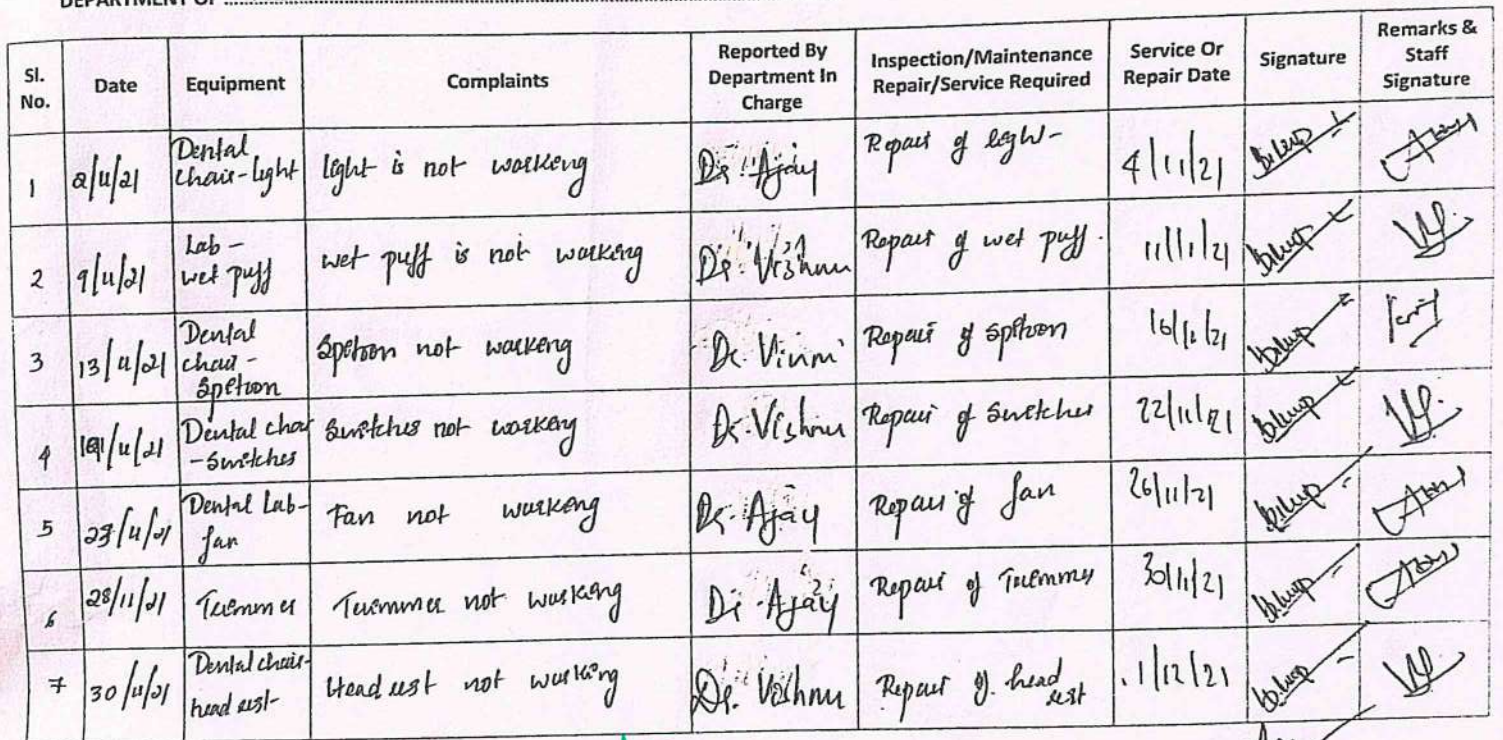 DEPARTMENT OF
Sl. No. | Date | Equipment | Complaints | Reported By Department In Charge | Inspection/Maintenance Repair/Service Required | Service Or Repair Date | Signature | Remarks & Staff Signature
1 | 2/11/21 | Dental chair-light | light is not working | Dr. Ajay | Repair of light- | 4/11/21
2 | 9/11/21 | Lab - wet puff | wet puff is not working | Dr. Vishnu | Repair of wet puff. | 11/11/21
3 | 13/11/21 | Dental chair - Spitoon | Spitoon not working | Dr. Vinni | Repair of Spitoon | 16/11/21
4 | /11/21 | Dental chair - Switches | Switches not working | Dr. Vishnu | Repair of Switches | 22/11/21
5 | 23/11/21 | Dental Lab- fan | Fan not working | Dr. Ajay | Repair of fan | 26/11/21
6 | 28/11/21 | Trimmer | Trimmer not working | Dr. Ajay | Repair of Trimmer | 30/11/21
7 | 30/11/21 | Dental chair- head rest- | Head rest not working | Dr. Vishnu | Repair of head rest | 1/12/21